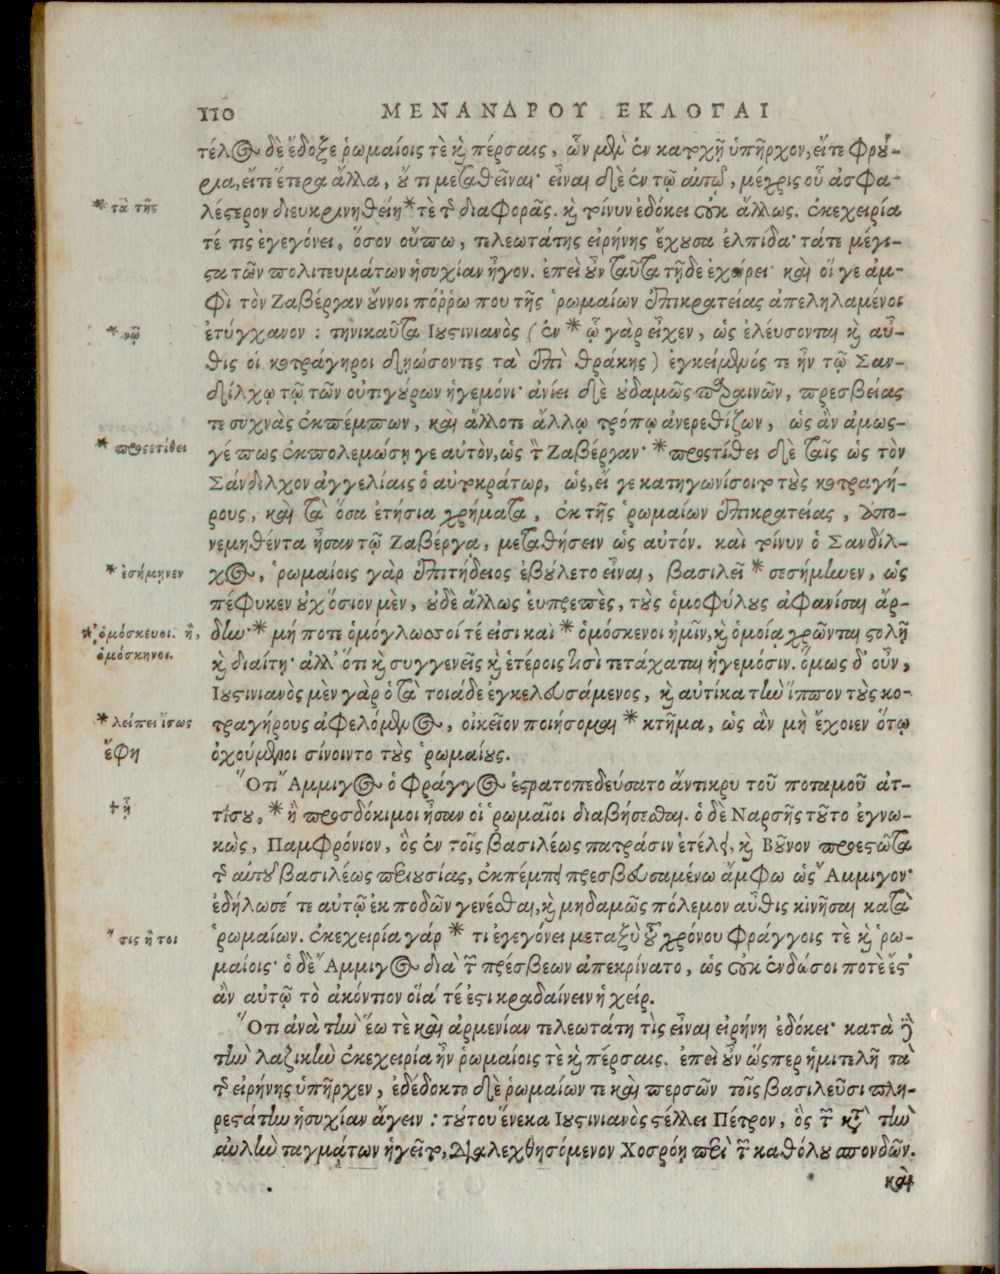 110 ΜΕΝΑΝΔΡΟΥ ΕΚΛΟΓΑΙ
τέλος δὲ ἔδοξε ῥωμαίοις τὲ καὶ πέρσαις, ὧν μὲν ἐν κατοχῇ ὑπῆρχον, εἴτε φρού-
ρια, εἴτε ἕτερα ἄλλα, οὔ τι μεταθεῖναι· εἶναι δὲ ἐν τῷ αὐτῷ, μέχρις οὗ ἀσφα-
* τὰ τῆς
λέστερον διευκρινηθείη * τὲ τῆς διαφορᾶς. καὶ τοίνυν ἐδόκει οὐκ ἄλλως. ἐκεχειρία
τέ τις ἐγεγόνει, ὅσον οὔπω, τελεωτάτης εἰρήνης ἔχουσα ἐλπίδα· τάτε μέγι-
στα τῶν πολιτευμάτων ἡσυχίαν ἦγον. ἐπεὶ οὖν ταῦτα τῇδε ἐχώρει· καὶ οἵ γε ἀμ-
φὶ τὸν Ζαβέργαν οὖννοι πόῤῥω που τῆς ῥωμαίων ἐπικρατείας ἀπεληλαμένοι
* νῷ
ἐτύγχανον : τηνικαῦτα Ιουστινιανὸς (ἐν * ᾧ γὰρ εἶχεν, ὡς ἐλεύσονται καὶ αὖ-
θις οἱ κοτράγηροι δῃώσοντες τὰ ἐπὶ θράκης) ἐγκείμενός τε ἦν τῷ Σαν-
δίλχῳ τῷ τῶν οὐτιγούρων ἡγεμόνι· ἀνίει δὲ οὐδαμῶς παραινῶν, πρεσβείας
τε συχνὰς ἐκπέμπων, καὶ ἄλλοτε ἄλλῳ τρόπῳ ἀνερεθίζων, ὡς ἂν ἀμωσ-
* προσετίθει
γέπως ἐκπολεμώσῃ γε αὐτὸν, ὡς τὸν Ζαβέργαν· * προστίθει δὲ ταῖς ὡς τὸν
Σάνδιλχον ἀγγελίαις ὁ αὐτοκράτωρ, ὡς, εἴ γε κατηγωνίσοιτο τοὺς κοτραγή-
ρους, καὶ τὰ ὅσα ἐτήσια χρήματα, ἐκ τῆς ῥωμαίων ἐπικρατείας, ἀπο-
νεμηθέντα ἦσαν τῷ Ζαβεργα, μεταθήσειν ὡς αὐτόν. καὶ τοίνυν ὁ Σανδίλ-
* ἐσήμηνεν
χος, ῥωμαίοις γὰρ ἐπιτήδειος ἐβούλετο εἶναι, βασιλεῖ * σεσήμηνεν, ὡς
πέφυκεν οὐχ ὅσιον μὲν, οὐδὲ ἄλλως εὐπρεπὲς, τοὺς ὁμοφύλους ἀφανίσαι ἄρ-
* ὁμόσκευοι. ἢ,
ὁμόσκηνοι.
δην· * μή ποτε ὁμόγλωσσοί τέ εἰσι καὶ * ὁμόσκενοι ἡμῖν, καὶ ὁμοίᾳ χρῶνται στολῇ
καὶ διαίτῃ· ἀλλ' ὅτι καὶ συγγενεῖς καὶ ἑτέροις εἰσὶ τετάχαται ἡγεμόσιν. ὅμως δ' οὖν,
Ιουστινιανὸς μὲν γὰρ ὁ τὰ τοιάδε ἐγκελευσάμενος, καὶ αὐτίκα τὴν ἵππον τοὺς κο-
* λείπει ἴσως
ἔφη
τραγήρους ἀφελόμενος, οἰκεῖον ποιήσομαι * κτῆμα, ὡς ἂν μὴ ἔχοιεν ὅτῳ
ὀχούμενοι σίνοιντο τοὺς ῥωμαίους.
Ὅτι Ἄμμιγος ὁ Φράγγος ἐστρατοπεδεύσατο ἄντικρυ τοῦ ποταμοῦ ἀτ-
† ᾗ
τίσου, * ἢ προσδόκιμοι ἦσαν οἱ ῥωμαῖοι διαβήσεσθαι. ὁ δὲ Ναρσῆς τοῦτο ἐγνω-
κὼς, Παμφρόνιον, ὃς ἐν τοῖς βασιλέως πατράσιν ἐτέλει, καὶ Βοῦνον προεστῶτα
τῆς αὐτοῦ βασιλέως περιουσίας, ἐκπέμπει πρεσβευσαμένω ἄμφω ὡς Ἄμμιγον·
ἐδήλωσέ τε αὐτῷ ἐκ ποδῶν γενέσθαι, καὶ μηδαμῶς πόλεμον αὖθις κινῆσαι κατὰ
* τις ἢ τοι
ῥωμαίων. ἐκεχειρία γάρ * τι ἐγεγόνει μεταξὺ τοῦ χρόνου Φράγγοις τὲ καὶ ῥω-
μαίοις· ὁ δὲ Ἄμμιγος διὰ τῶν πρέσβεων ἀπεκρίνατο, ὡς οὐκ ἐνδώσοι ποτὲ ἔς'
ἂν αὐτῷ τὸ ἀκόντιον οἵα τέ ἐστι κραδαίνειν ἡ χείρ.
Ὅτι ἀνὰ τὴν ἕω τὲ καὶ ἀρμενίαν τελεωτάτη τὶς εἶναι εἰρήνη ἐδόκει· κατὰ δὲ
τὴν λαζικὴν ἐκεχειρία ἦν ῥωμαίοις τὲ καὶ πέρσαις. ἐπεὶ οὖν ὥσπερ ἡμιτελῆ τὰ
τῆς εἰρήνης ὑπῆρχεν, ἐδέδοκτο δὲ ῥωμαίων τε καὶ περσῶν τοῖς βασιλεῦσι πλη-
ρεστάτην ἡσυχίαν ἄγειν : τούτου ἕνεκα Ιουστινιανὸς στέλλει Πέτρον, ὃς τῶν κατὰ τὴν
αὐλὴν ταγμάτων ἡγεῖτο, διαλεχθησόμενον Χοσρόῃ περὶ τῶν καθόλου σπονδῶν.
καὶ